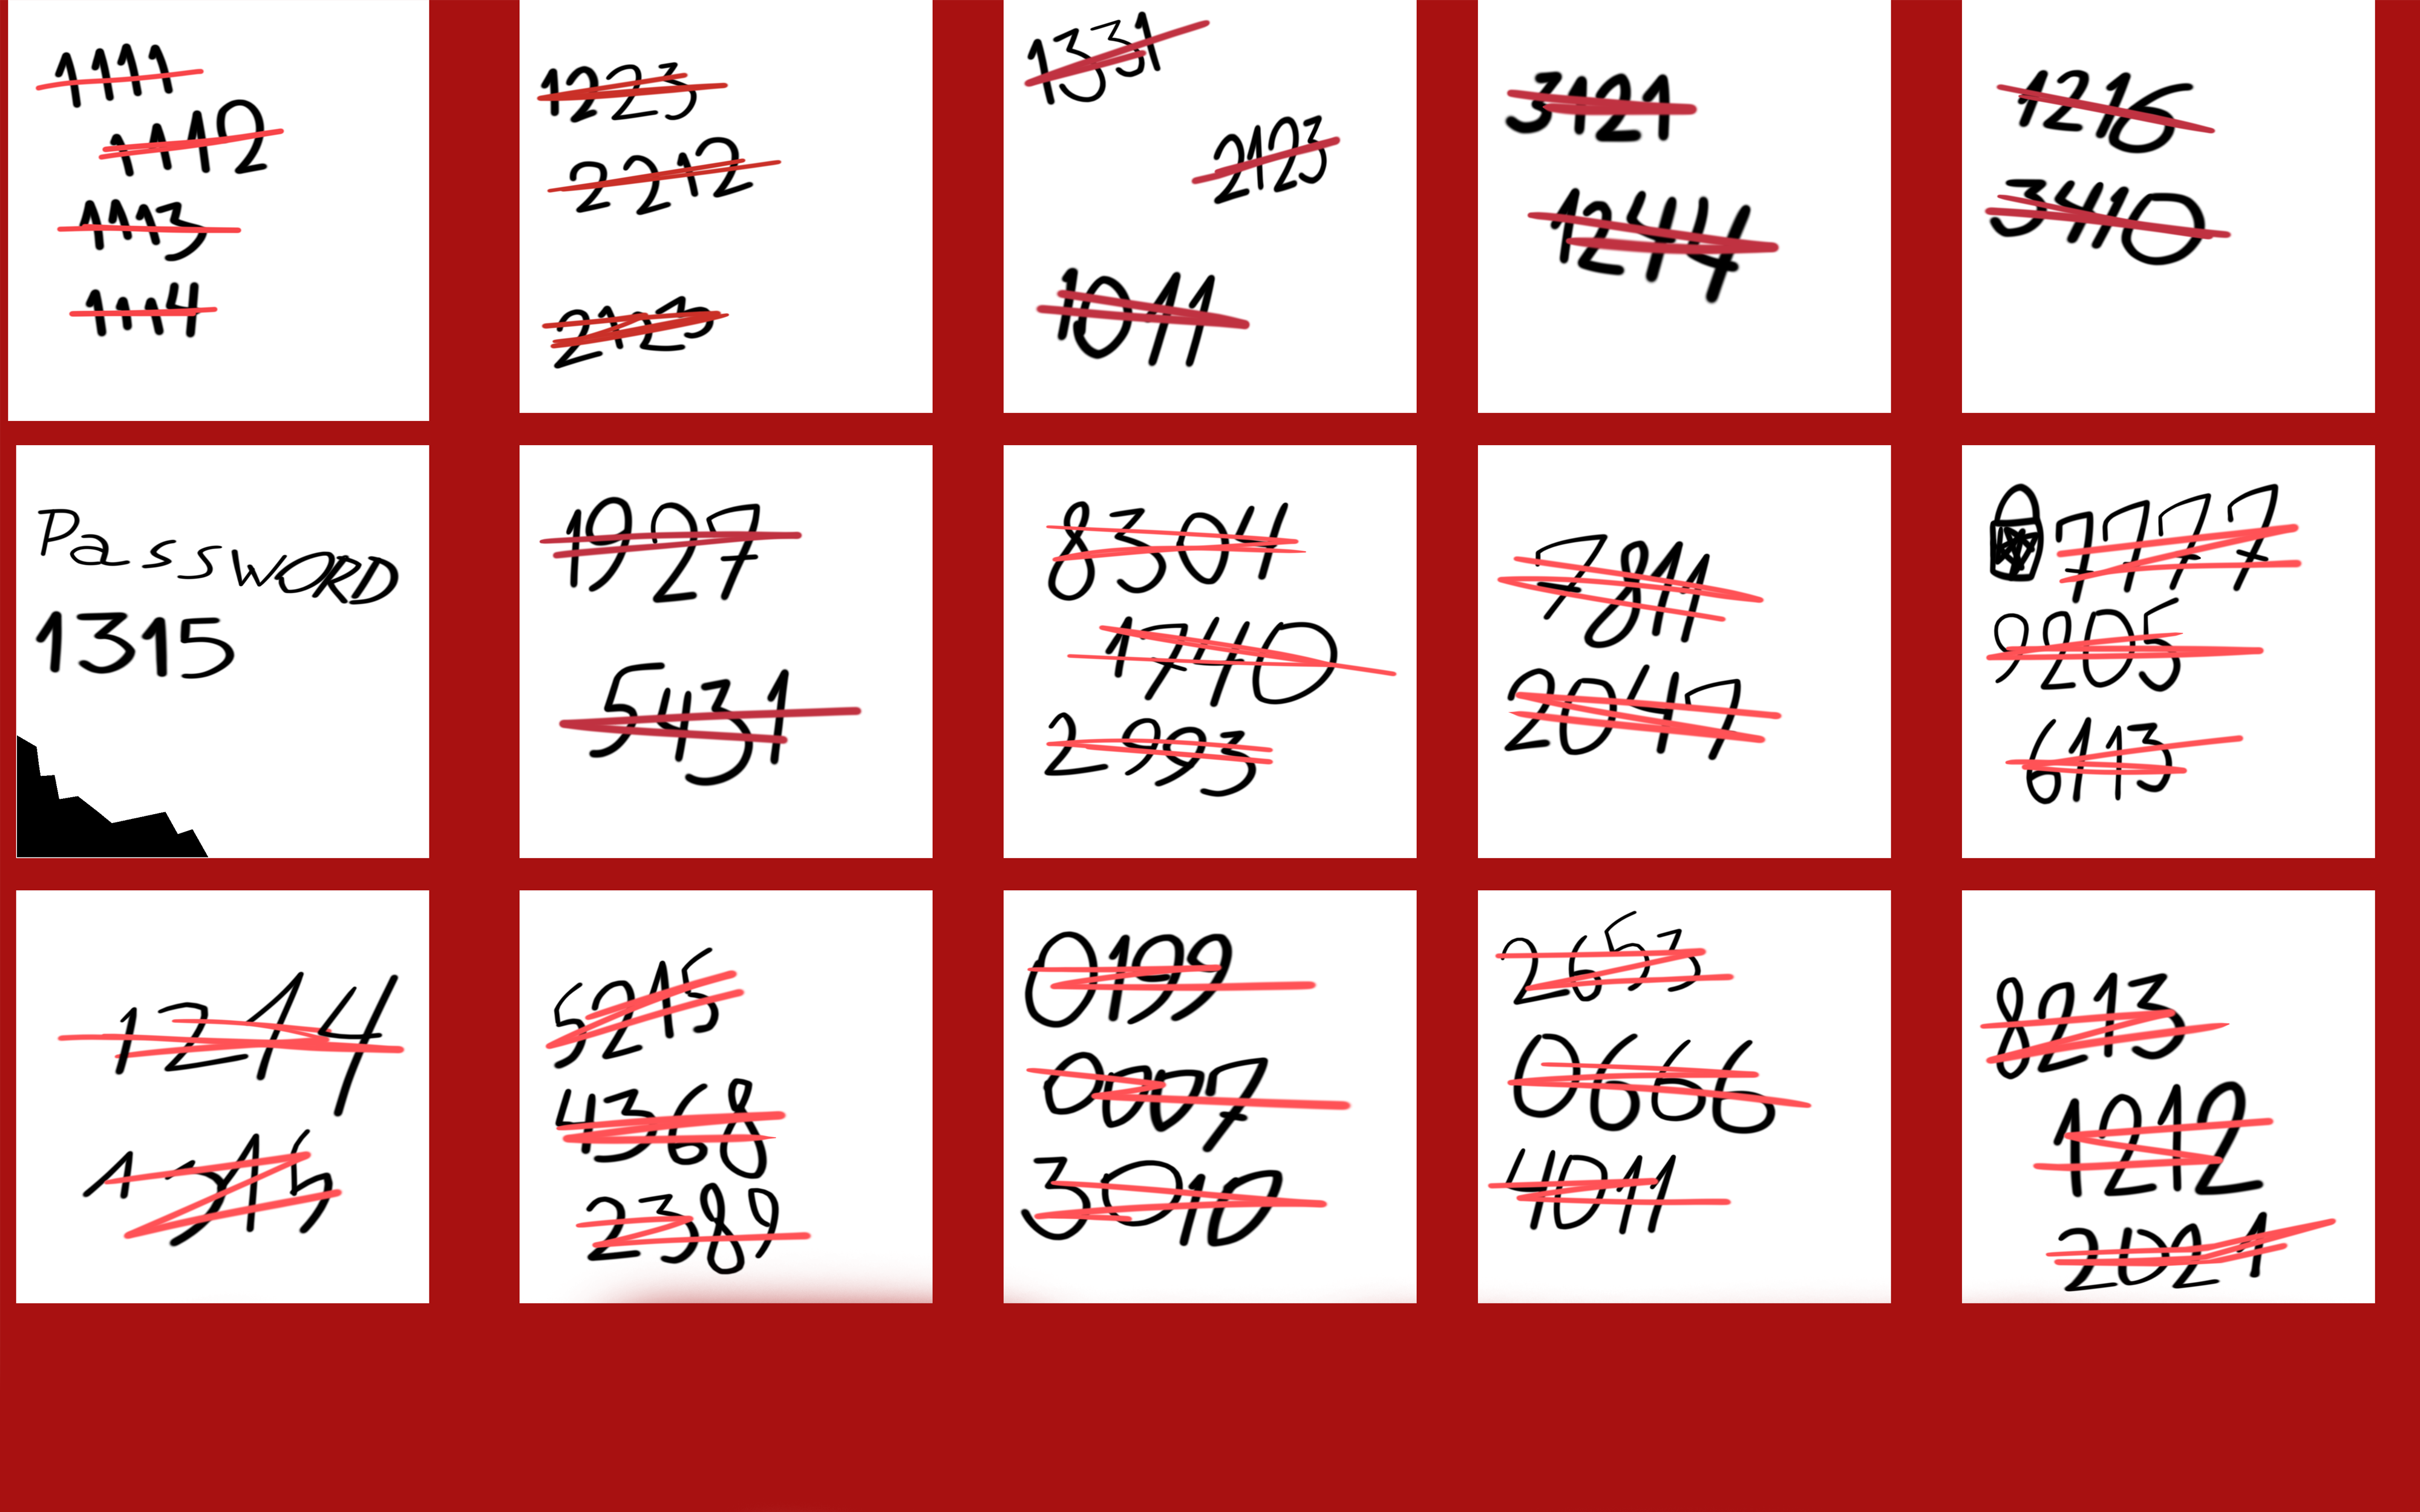 1111
1112
1113
1114
1223
2212
2123
1331
2123
1011
3121
1244
1216
3410
PassWORD
1315
1927
5431
8304
1740
2993
7811
2047
7777
9205
6113
1214
1315
5215
4368
2389
0199
0007
3010
2653
0666
4011
8213
1212
2021